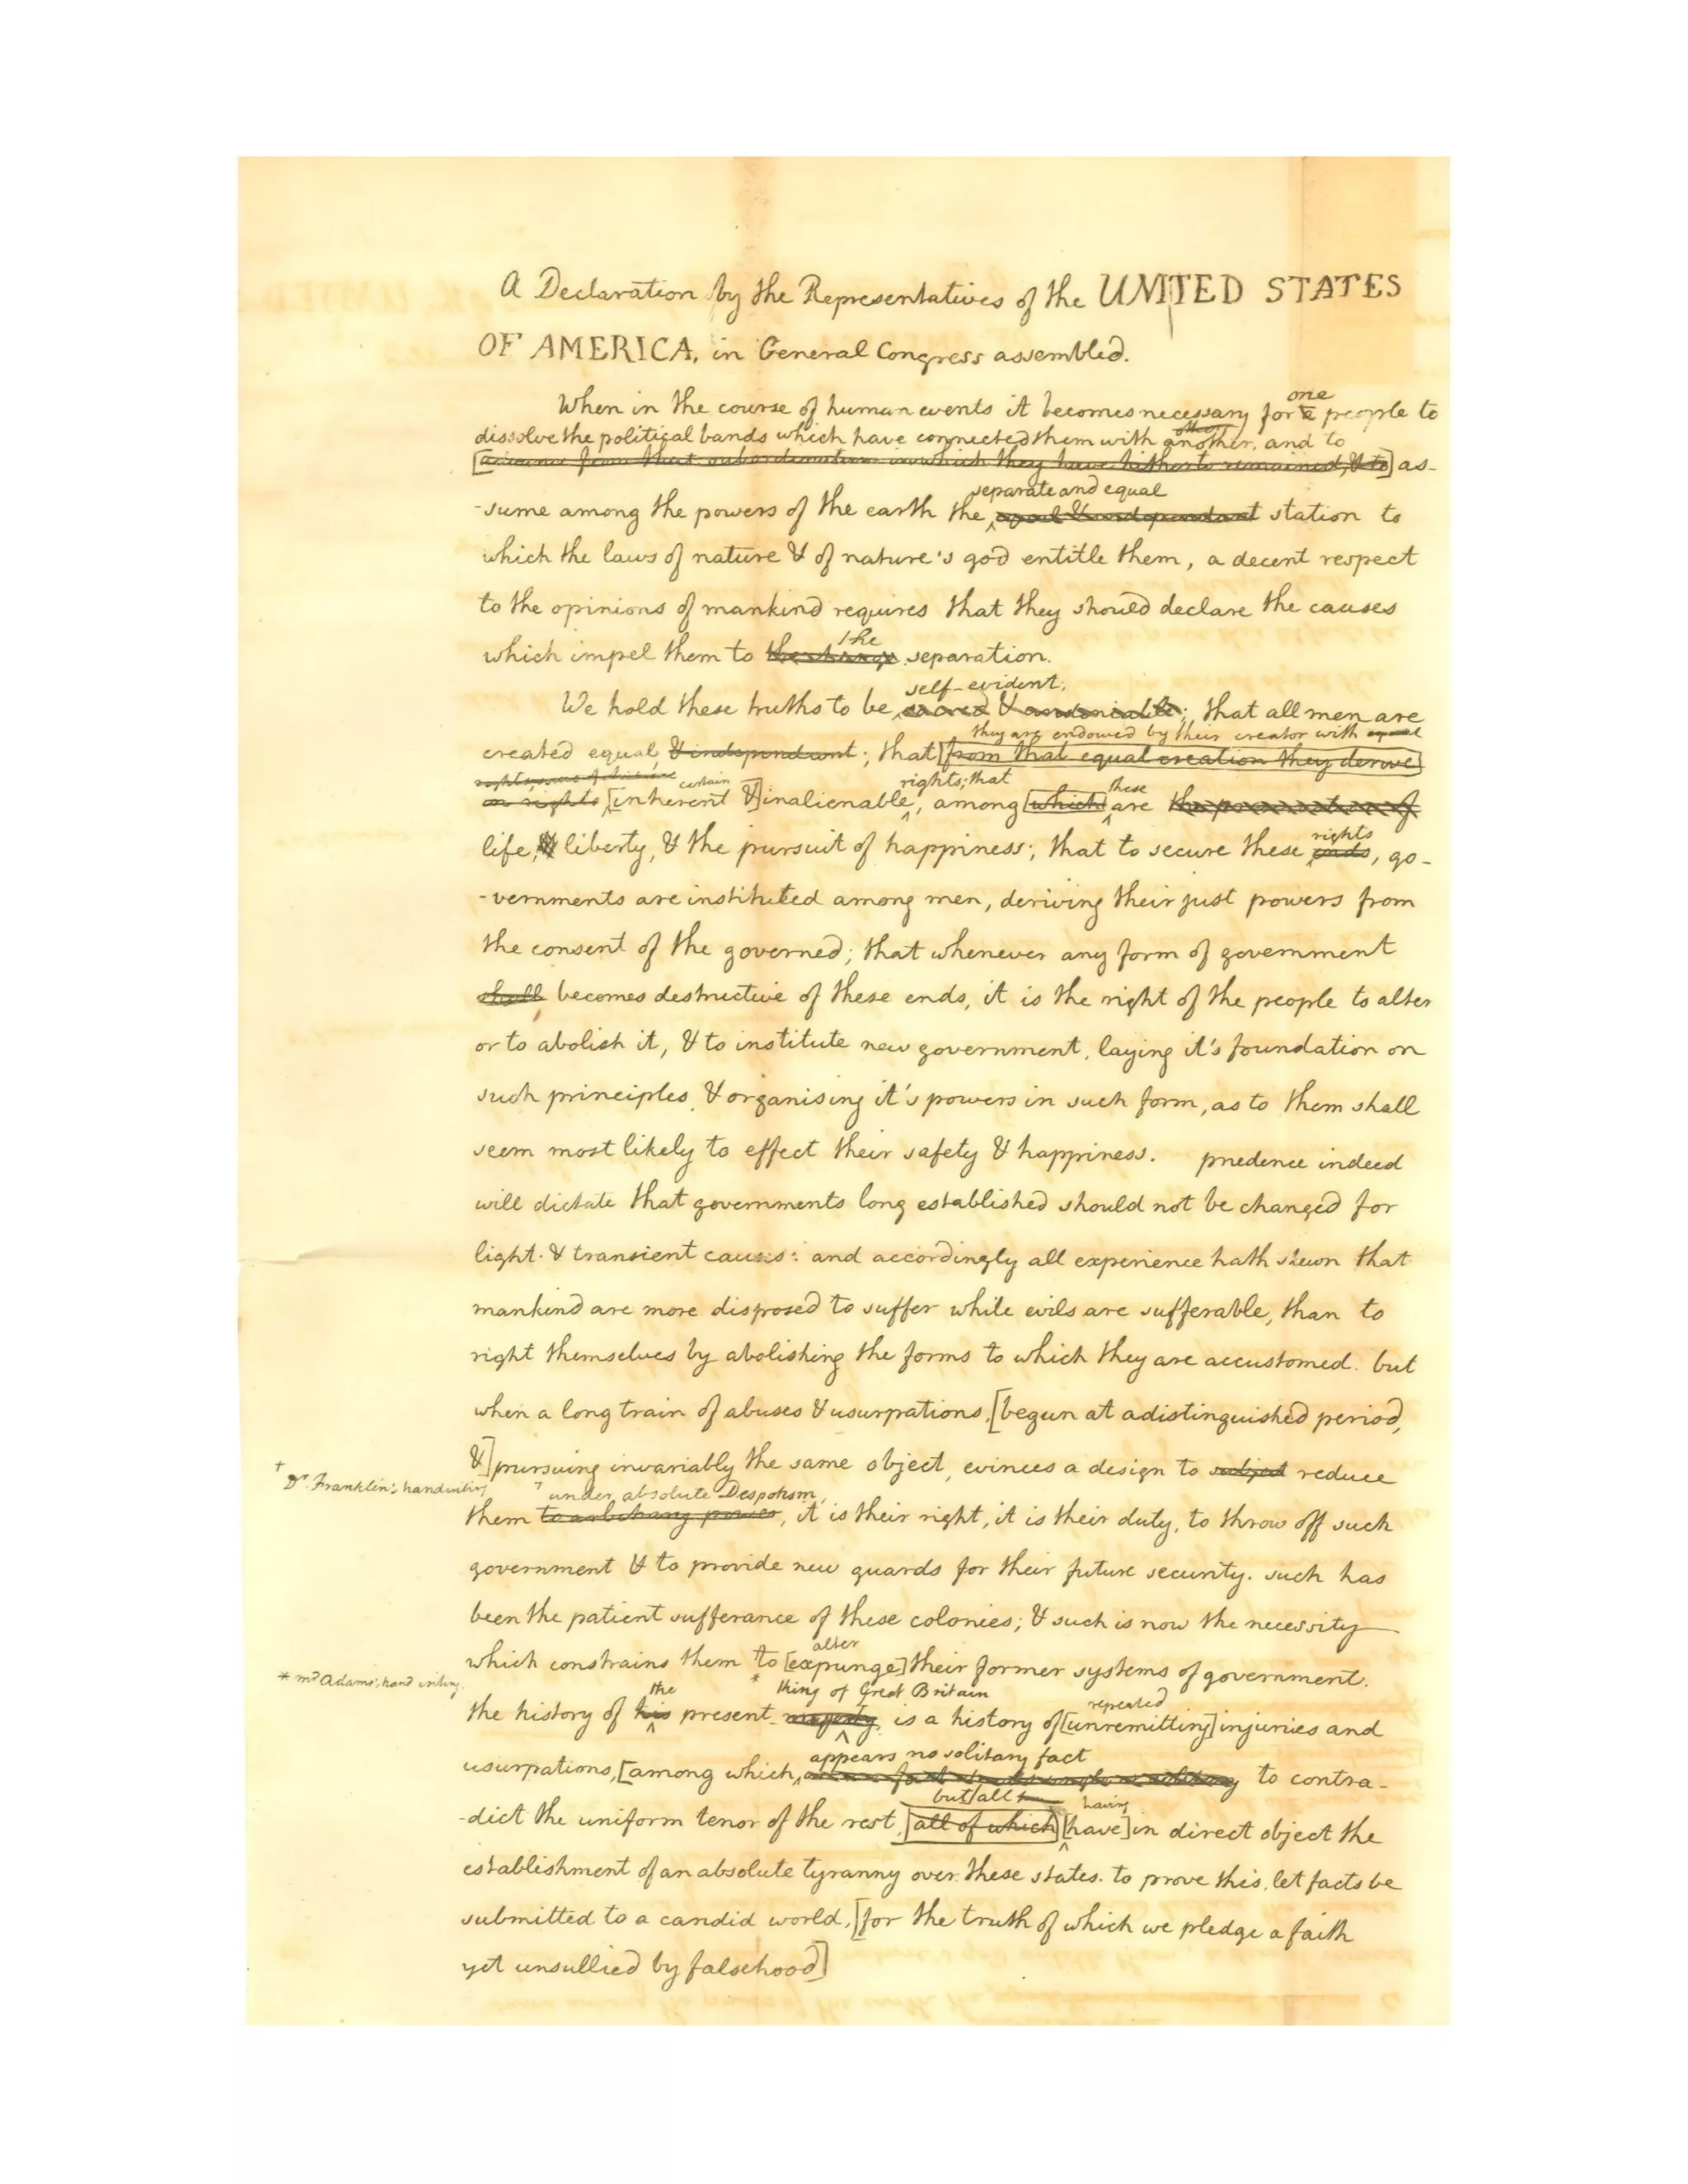 A Declaration by the Representatives of the UNITED STATES
OF AMERICA, in General Congress assembled.
one
When in the course of human events it becomes necessary for a people to
other
dissolve the political bands which have connected them with another, and to
[advance from that subordination in which they have hitherto remained, & to] as-
separate and equal
-sume among the powers of the earth the equal & independant station to
which the laws of nature & of nature's god entitle them, a decent respect
to the opinions of mankind requires that they should declare the causes
the
which impel them to the change separation.
self-evident,
We hold these truths to be sacred & undeniable; that all men are
they are endowed by their creator with equal
created equal & independant; that [from that equal creation they derive]
rights, some of which are certain rights; that these
in rights [inherent &] inalienable, among [which] are the preservation of
rights
life, & liberty, & the pursuit of happiness; that to secure these ends, go-
-vernments are instituted among men, deriving their just powers from
the consent of the governed; that whenever any form of government
shall becomes destructive of these ends, it is the right of the people to alter
or to abolish it, & to institute new government, laying it's foundation on
such principles & organising it's powers in such form, as to them shall
seem most likely to effect their safety & happiness. prudence indeed
will dictate that governments long established should not be changed for
light & transient causes: and accordingly all experience hath shewn that
mankind are more disposed to suffer while evils are sufferable, than to
right themselves by abolishing the forms to which they are accustomed. but
when a long train of abuses & usurpations, [begun at a distinguished period,
&] pursuing invariably the same object, evinces a design to subject reduce
† Dr. Franklin's handwriting
† under absolute Despotism,
them to arbitrary power, it is their right, it is their duty, to throw off such
government & to provide new guards for their future security. such has
been the patient sufferance of these colonies; & such is now the necessity
alter
which constrains them to [expunge] their former systems of government.
* mr Adams's hand writing
the * king of Great Britain repeated
the history of his present majesty is a history of [unremitting] injuries and
appears no solitary fact
usurpations, [among which, to contra-
but all having
-dict the uniform tenor of the rest, [all of which] [have] in direct object the
establishment of an absolute tyranny over these states. to prove this, let facts be
submitted to a candid world, [for the truth of which we pledge a faith
yet unsullied by falsehood]